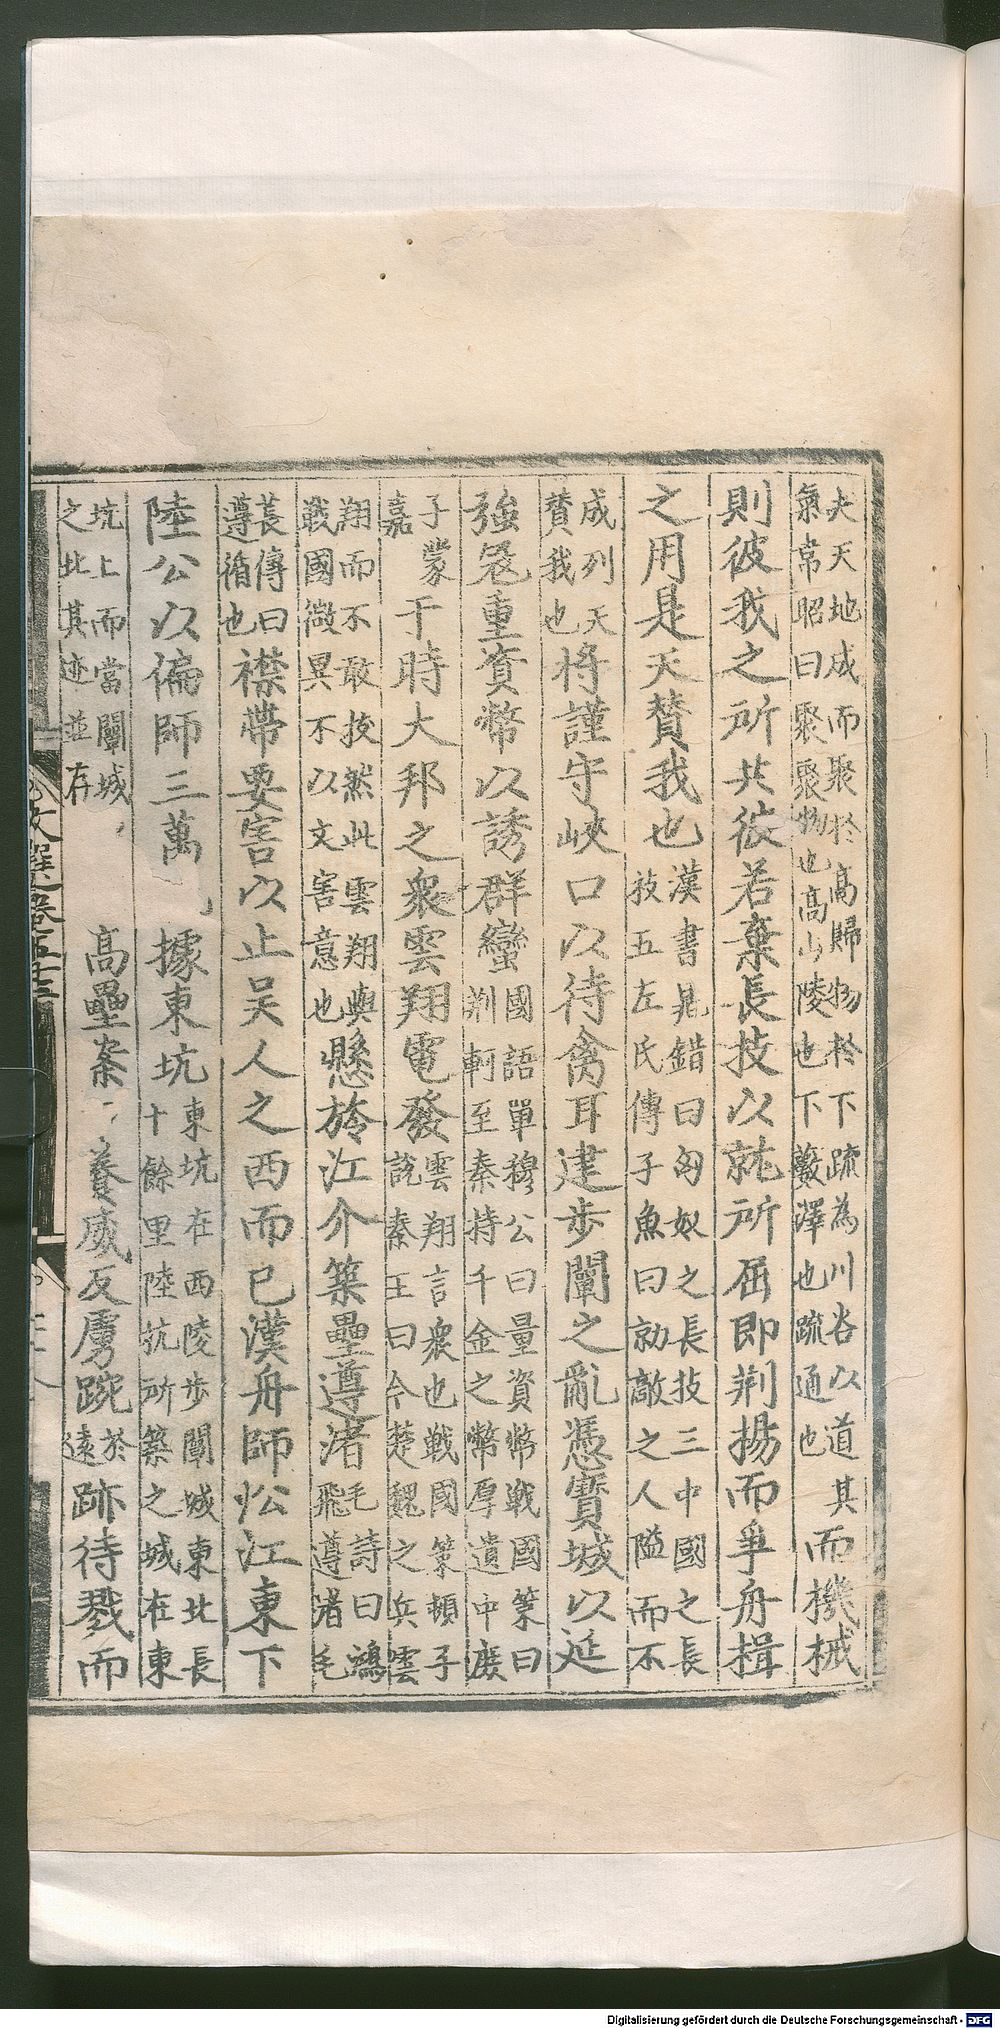 夫天地成而聚於高歸物於下疏為川谷以道其
氣韋昭曰聚聚物也高山陵也下藪澤也疏通也
而機械
則彼我之所共彼若棄長技以就所屈即荆揚而爭舟楫
之用是天賛我也
漢書晁錯曰匈奴之長技三中國之長
技五左氏傳子魚曰勍敵之人隘而不
成列天
賛我也
將謹守峽口以待禽耳逮步闡之亂憑寶城以延
強冦重資幣以誘群蠻
國語單穆公曰量資幣戰國策曰
荆軻至秦持千金之幣厚遺中庶
子蒙
嘉
于時大邦之衆雲翔電發
雲翔言衆也戰國策頓子
説秦王曰今楚魏之兵雲
翔而不敢挍然此雲翔與
戰國微異不以文害意也
懸旍江介築壘遵渚
毛詩曰鴻
飛遵渚毛
萇傳曰
遵循也
襟帶要害以止吴人之西而已漢舟師㳂江東下
陸公以偏師三萬
據東坑
東坑在西陵步闡城東北長
十餘里陸抗所築之城在東
坑上而當闡城
之北其迹並存
高壘案
養威反虜踠
於
遠
跡待戮而
文選卷五十三
Digitalisierung gefördert durch die Deutsche Forschungsgemeinschaft - DFG